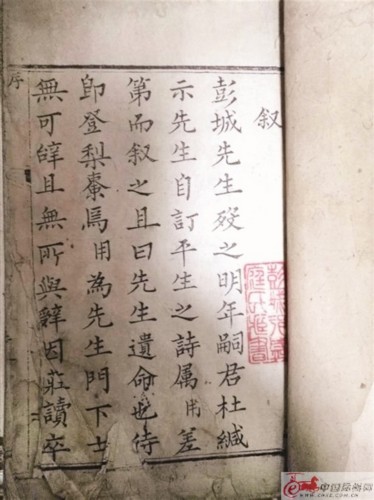 叙
彭城先生殁之明年嗣君杜緘
示先生自訂平生之詩属用差
第而叙之且曰先生遺命也侍
即登梨棗焉用為先生門下士
無可辝且無所與辭因莊讀卒
序
中国信鸽网
www.chinaxinge.com